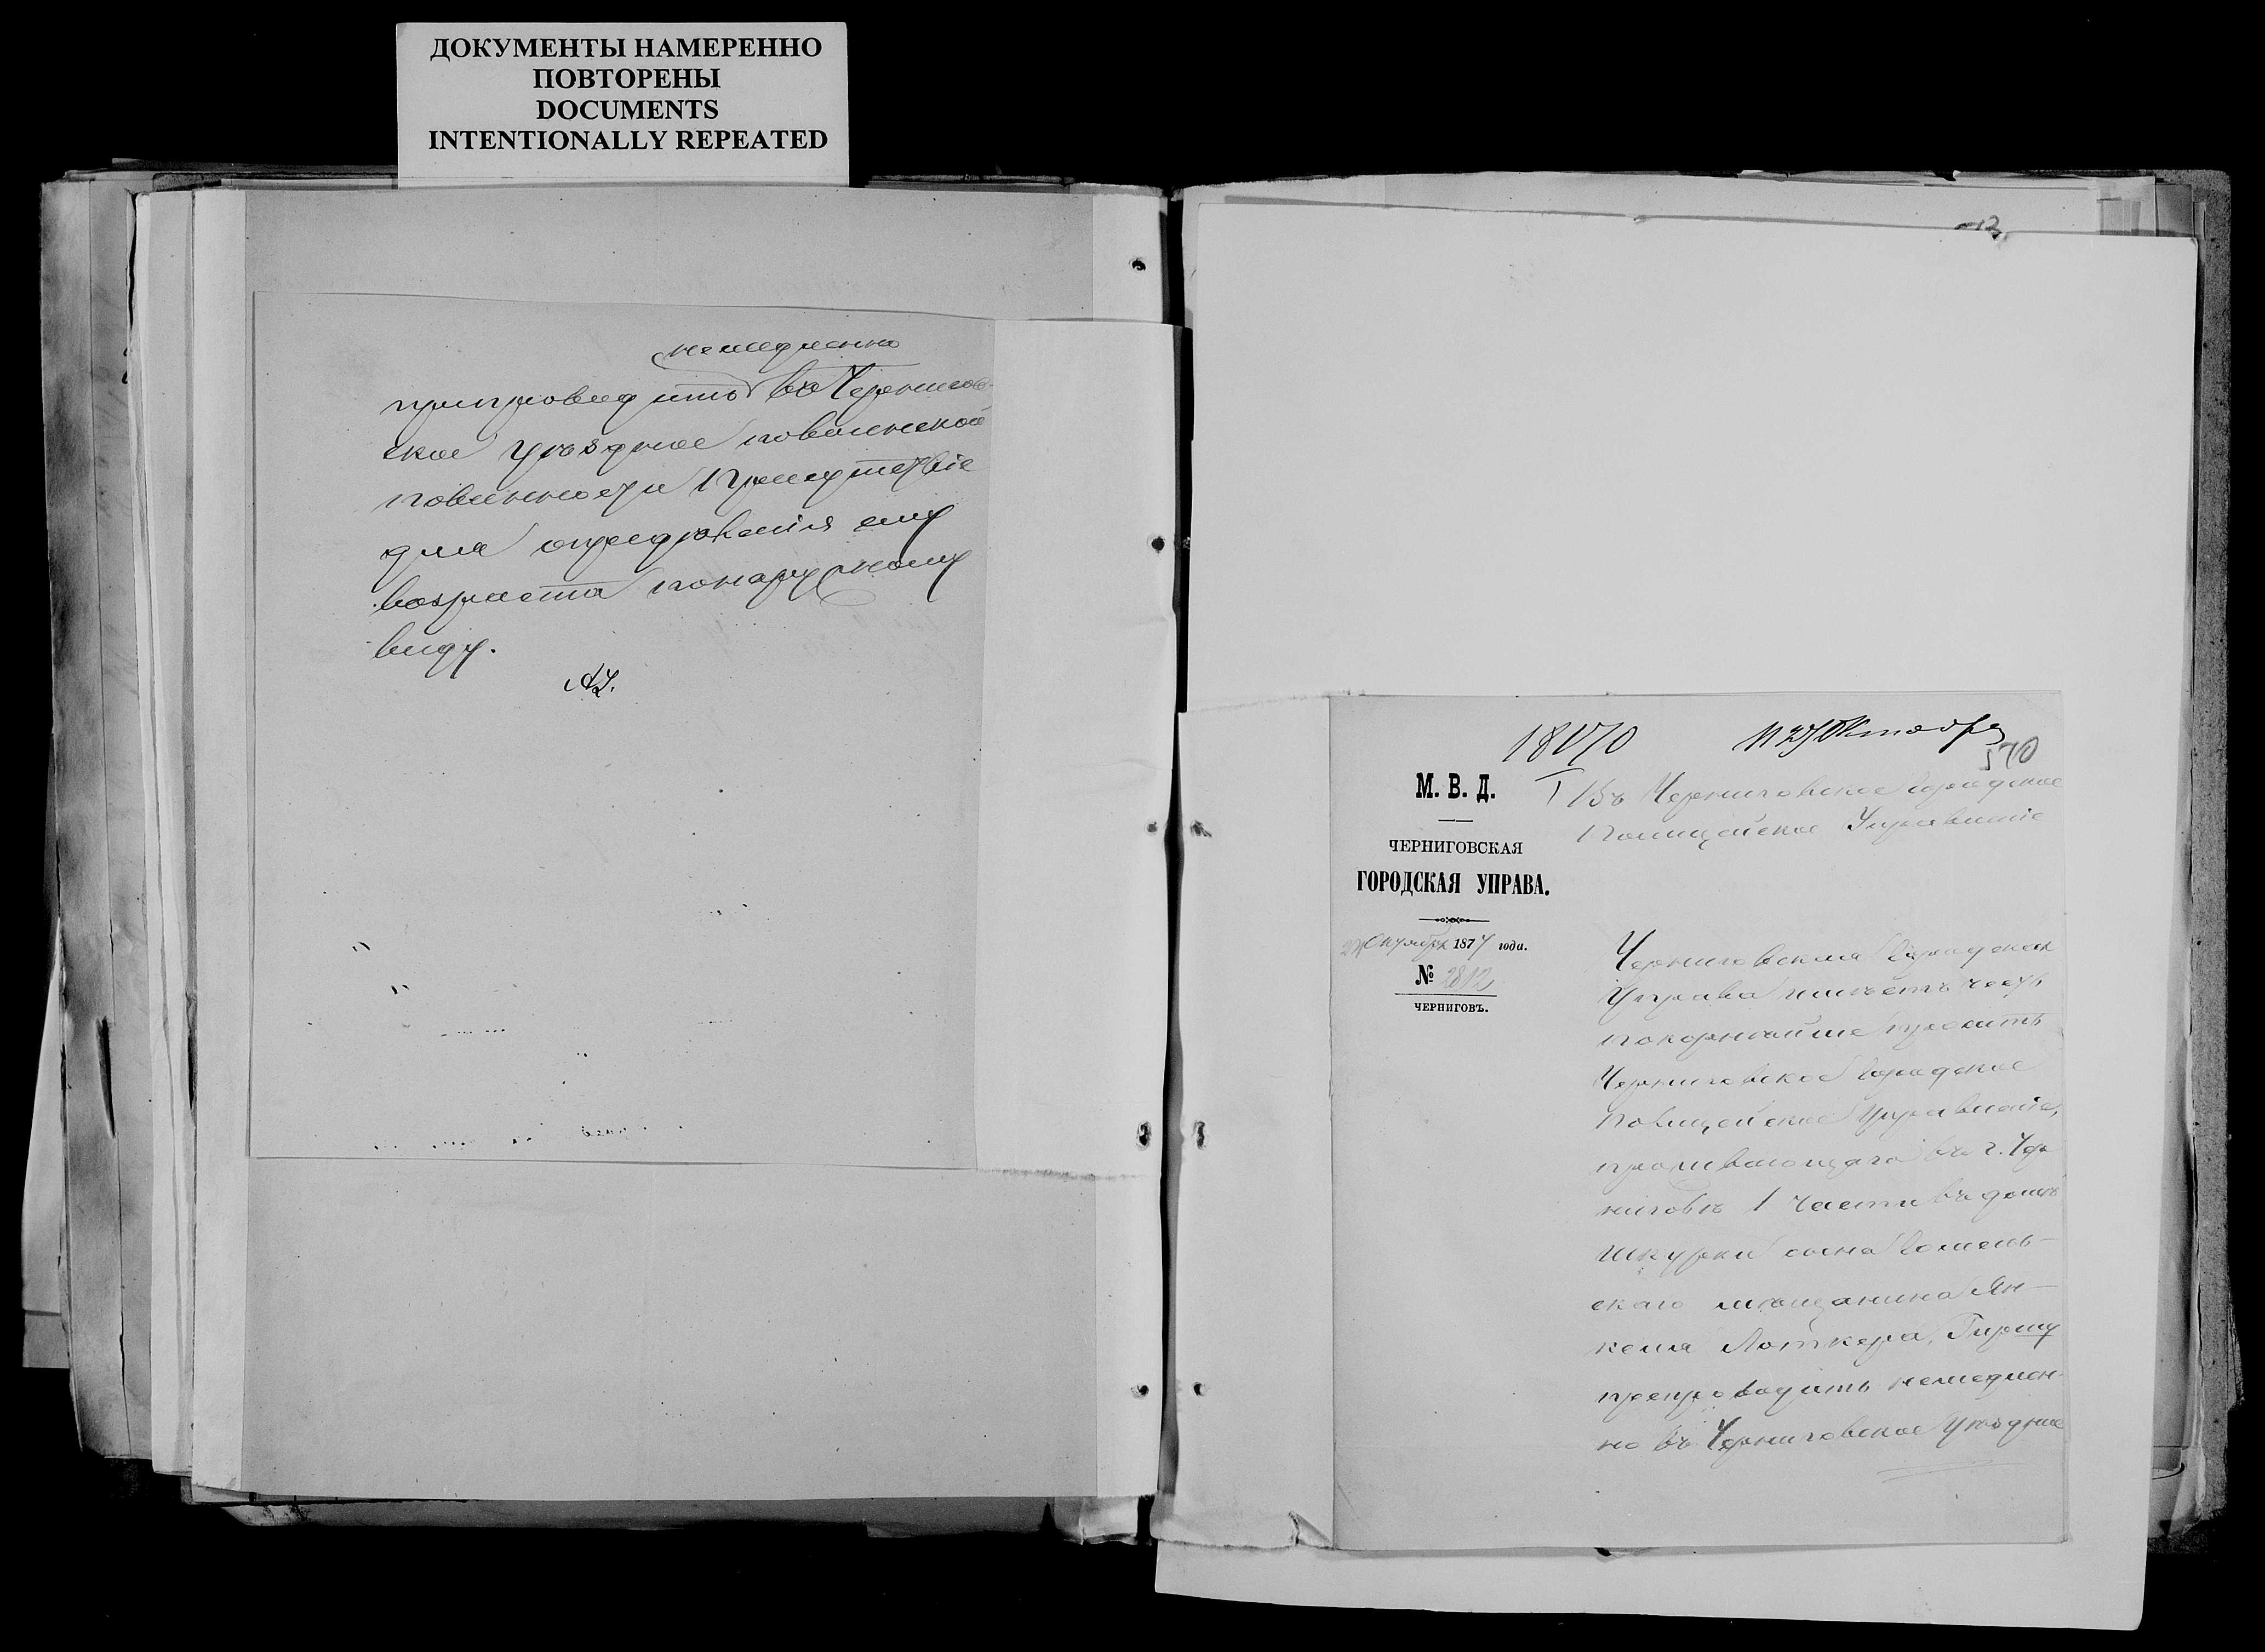 ДОКУМЕНТЫ НАМЕРЕННО
ПОВТОРЕНЫ
DOCUMENTS
INTENTIONALLY REPEATED
немедленно
препроводить въ Чернигов-
ское Уѣздное по воинской
повинности Присутствіе
для опредѣленія ему
возраста по наружному
виду.
18170
27 Октября
570
М. В. Д.
ЧЕРНИГОВСКАЯ
ГОРОДСКАЯ УПРАВА.
Октября 1877 года.
№ 2812
ЧЕРНИГОВЪ.
Въ Черниговское Городское
Полицейское Управленіе
Черниговская Городская
Управа имѣетъ честь
покорнѣйше просить
Черниговское Городское
Полицейское Управленіе,
проживающаго въ г. Чер
ниговѣ 1 части въ домѣ
Шкурки сына Гомель-
скаго мѣщанина Ян-
келя Лоткера, Гиршу
препроводить немедлен-
но въ Черниговское Уѣздное